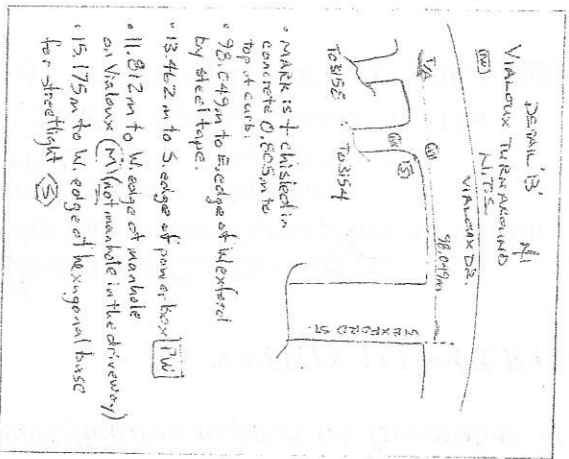 DETAIL 'B'
VIALOUX TURNAROUND
N.T.S.
N
VIALOUX DR.
PW
98.049m
T/A
M
M
S
WEXFORD ST.
To 3158
To 3154
• MARK is + chisled in
concrete 0.805m to
top of curb.
• 98.049m to E. edge of Wexford
by steel tape.
• 13.462m to S. edge of power box PW
• 11.812m to W. edge of manhole
on Vialoux (M) (not manhole in the driveway)
• 15.175m to W. edge of hexagonal base
for streetlight S